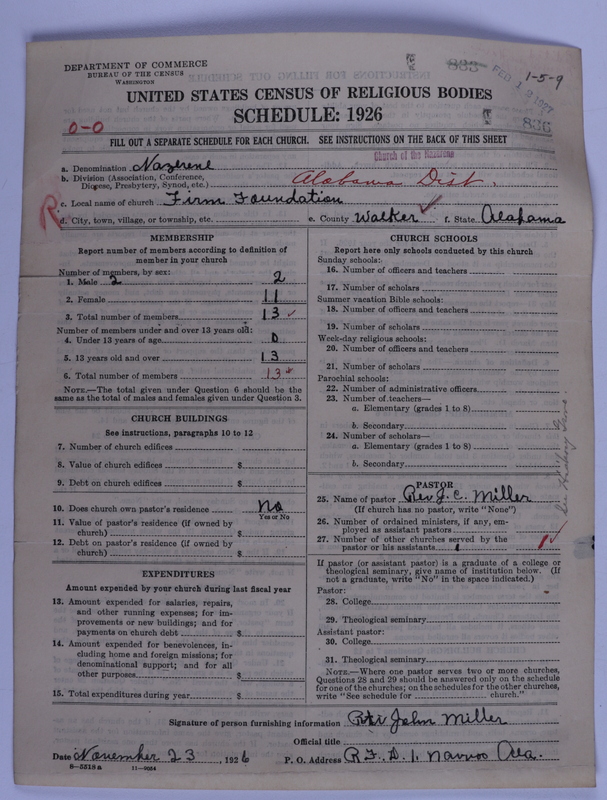 DEPARTMENT OF COMMERCE
BUREAU OF THE CENSUS
WASHINGTON
833
FEB 12 1927
1-5-9
UNITED STATES CENSUS OF RELIGIOUS BODIES
SCHEDULE: 1926
836
0-0
FILL OUT A SEPARATE SCHEDULE FOR EACH CHURCH. SEE INSTRUCTIONS ON THE BACK OF THIS SHEET
Church of the Nazarene
a. Denomination Nazerene
b. Division (Association, Conference, Diocese, Presbytery, Synod, etc.) Alabama Dist.
c. Local name of church Firm Foundation
R
d. City, town, village, or township, etc. e. County Walker ✓ f. State Alabama
MEMBERSHIP
Report number of members according to definition of
member in your church
Number of members, by sex:
1. Male 2 2
2. Female 11
3. Total number of members 13 ✓
Number of members under and over 13 years old:
4. Under 13 years of age 0
5. 13 years old and over 13
6. Total number of members 13
NOTE.—The total given under Question 6 should be
same as the total of males and females given under Question 3.
CHURCH BUILDINGS
See instructions, paragraphs 10 to 12
7. Number of church edifices
8. Value of church edifices $
9. Debt on church edifices $
10. Does church own pastor's residence No
Yes or No
11. Value of pastor's residence (if owned by
church) $
12. Debt on pastor's residence (if owned by
church) $
EXPENDITURES
Amount expended by your church during last fiscal year
13. Amount expended for salaries, repairs,
and other running expenses; for im-
provements or new buildings; and for
payments on church debt $
14. Amount expended for benevolences, in-
cluding home and foreign missions; for
denominational support; and for all
other purposes $
15. Total expenditures during year $
CHURCH SCHOOLS
Report here only schools conducted by this church
Sunday schools:
16. Number of officers and teachers
17. Number of scholars
Summer vacation Bible schools:
18. Number of officers and teachers
19. Number of scholars
Week-day religious schools:
20. Number of officers and teachers
21. Number of scholars
Parochial schools:
22. Number of administrative officers
23. Number of teachers—
a. Elementary (grades 1 to 8)
b. Secondary
24. Number of scholars—
a. Elementary (grades 1 to 8)
b. Secondary
PASTOR
25. Name of pastor Rev J. C. Miller
(If church has no pastor, write "None")
26. Number of ordained ministers, if any, em-
ployed as assistant pastors
27. Number of other churches served by the
pastor or his assistants 1 1 ✓
If pastor (or assistant pastor) is a graduate of a college or
theological seminary, give name of institution below. (If
not a graduate, write "No" in the space indicated.)
Pastor:
28. College
29. Theological seminary
Assistant pastor:
30. College
31. Theological seminary
NOTE.—Where one pastor serves two or more churches,
Questions 28 and 29 should be answered only on the schedule
for one of the churches; on the schedules for the other churches,
write "See schedule for church."
Signature of person furnishing information Rev John Miller
Official title
Date November 23, 1926 P. O. Address R. F. D. 1, Nauvoo Ala.
8—5518 a 11—9054